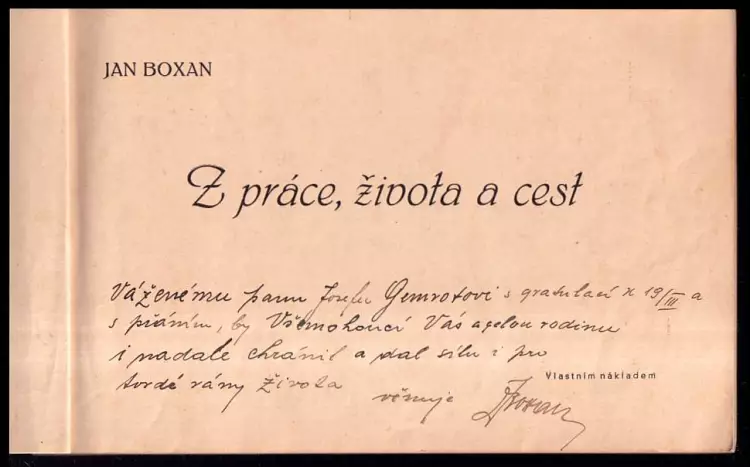 JAN BOXAN
Z práce, života a cest
Váženému panu Josefu Gemrotovi s gratulací k 19/III a
s přáním, by Všemohoucí Vás a celou rodinu
i nadále chránil a dal sílu i pro
tvrdé rány života
Vlastním nákladem
věnuje JBoxan